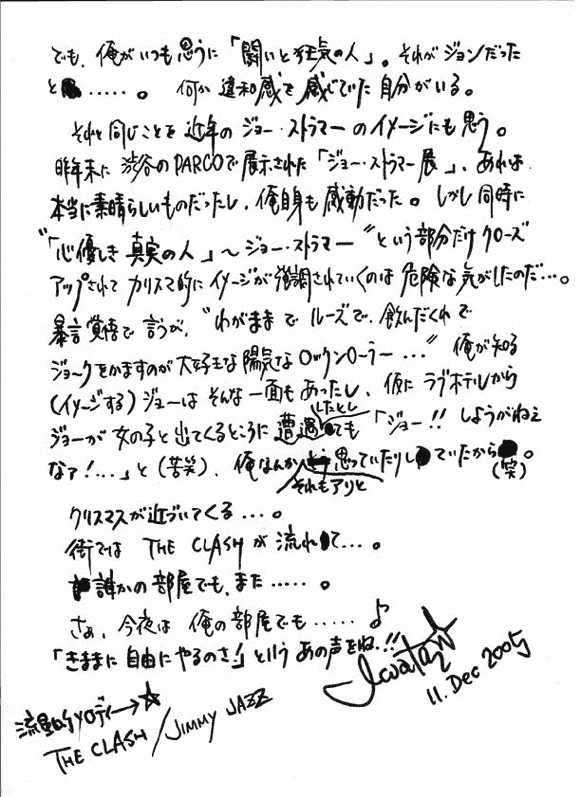 でも、俺がいつも思うに「闘いと狂気の人」。それがジョンだった
と……。何か違和感を感じていた自分がいる。
それと同じことを近年のジョー・ストラマーのイメージにも思う。
昨年末に渋谷のPARCOで展示された「ジョー・ストラマー展」、あれは
本当に素晴らしいものだったし、俺自身も感動だった。しかし同時に
“「心優しき真実の人」～ジョー・ストラマー”という部分だけクローズ
アップされてカリスマ的にイメージが強調されていくのは危険な気がしたのだ…。
暴言覚悟で言うが、“わがままでルーズで、飲んだくれで
ジョークをかますのが大好きな陽気なロックンローラー…”俺が知る
(イメージする)ジョーはそんな一面もあったし、仮にラブホテルから
ジョーが女の子と出てくるところに遭遇したとしても「ジョー!! しようがねえ
なァ!…」と(苦笑)、俺なんかそれもアリと思っていたりしていたから(笑)。
クリスマスが近づいてくる…。
街では THE CLASHが流れて…。
誰かの部屋でも、また……。
さぁ、今夜は俺の部屋でも……♪
「きままに自由にやるのさ!」というあの声をね!!
11. Dec 2005
流星的メロディー→☆
THE CLASH / JIMMY JAZZ